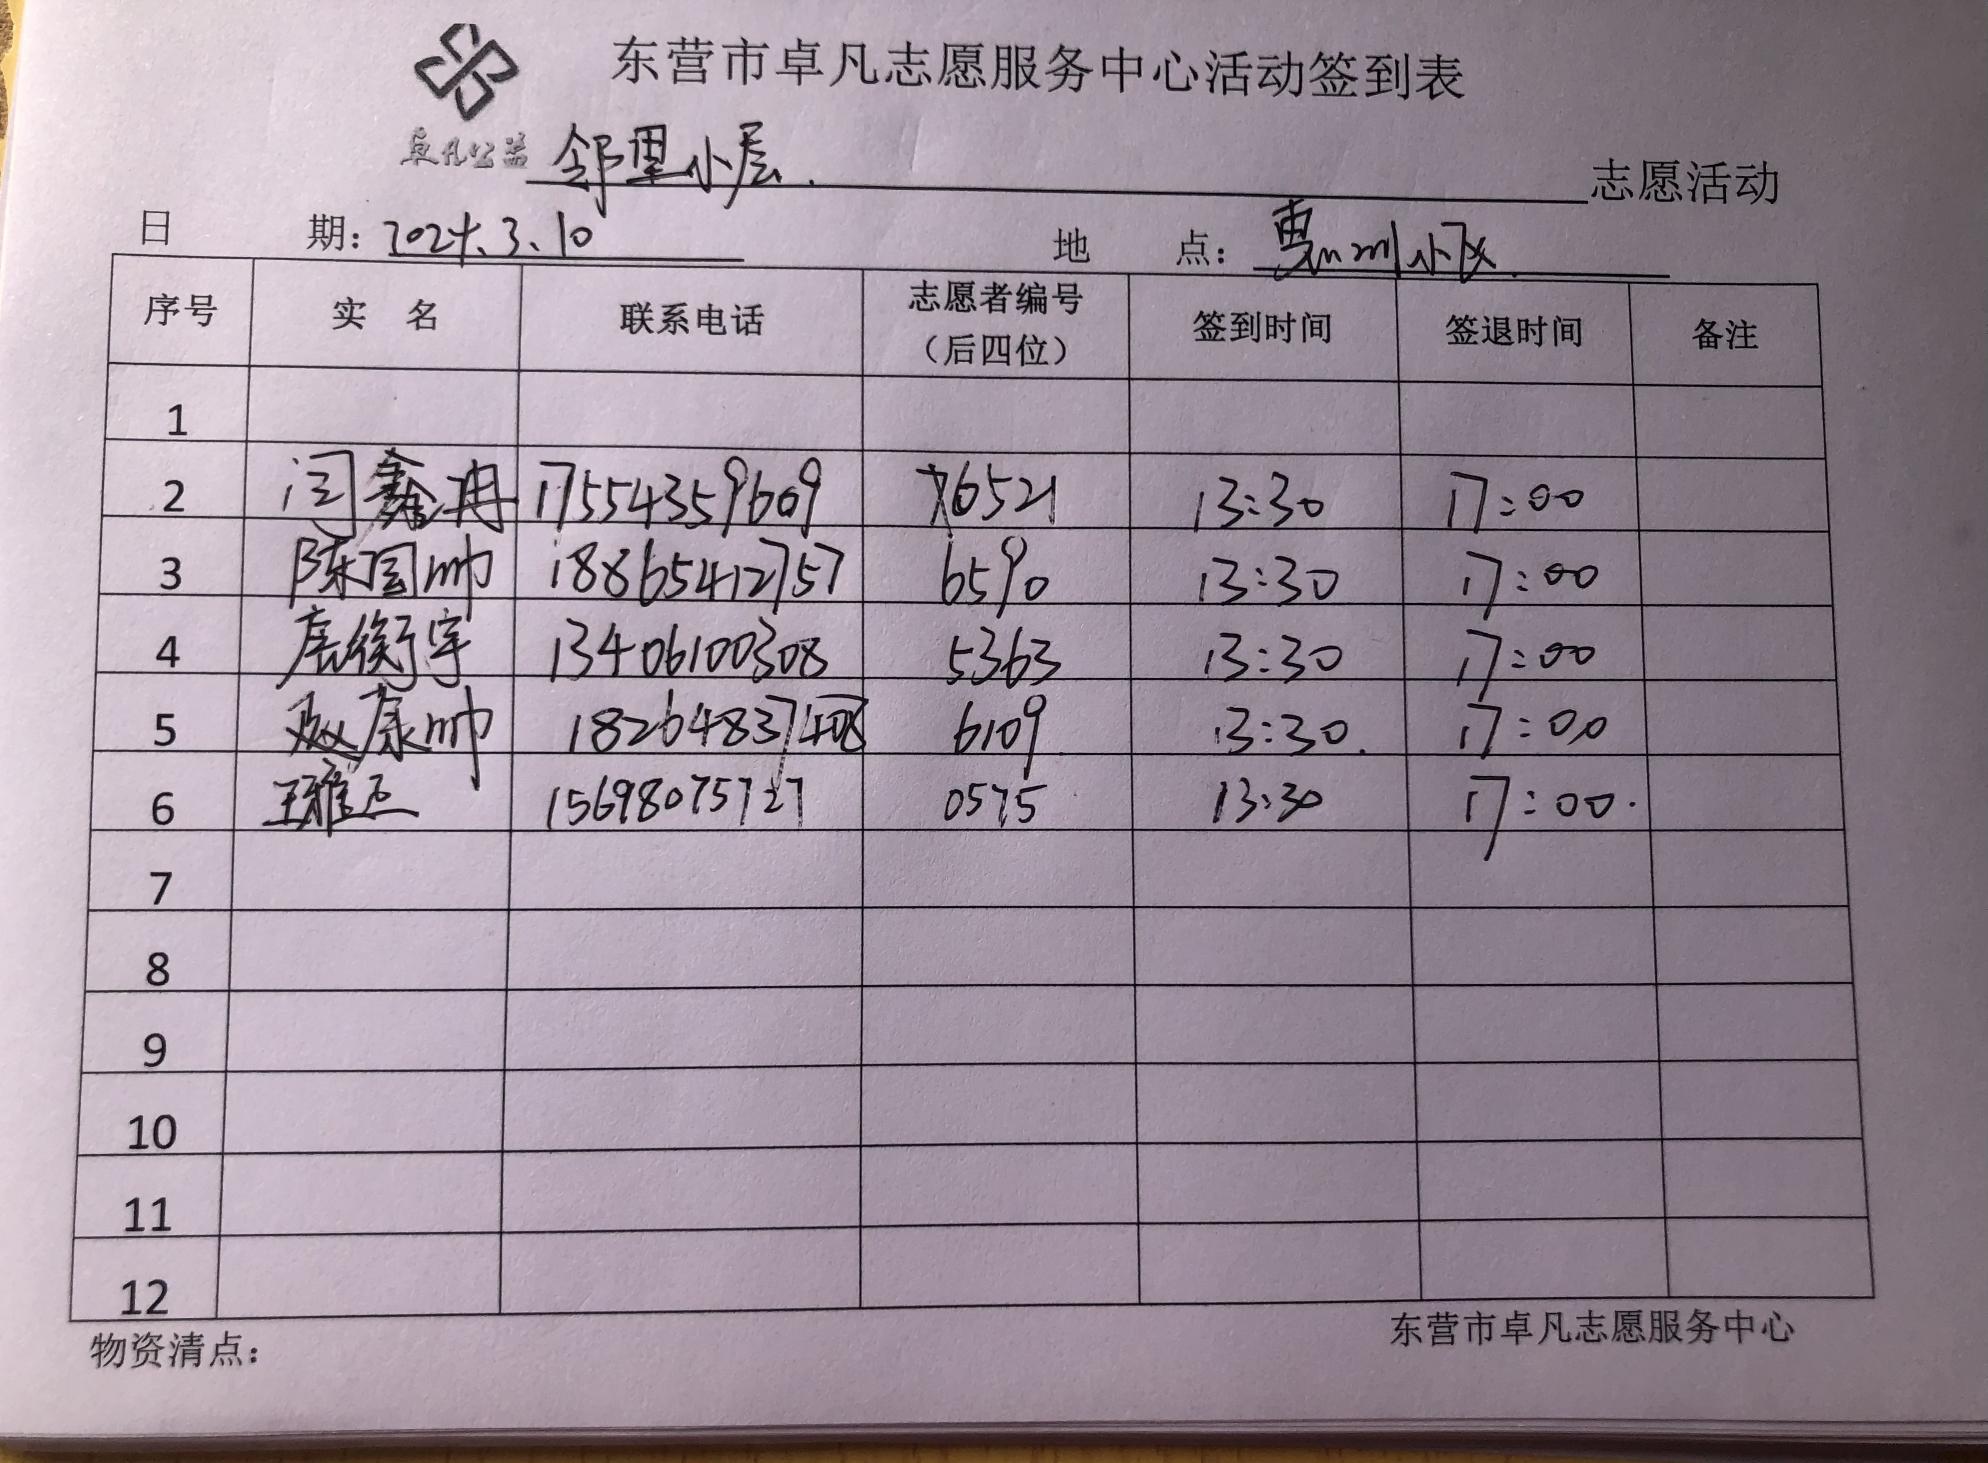 东营市卓凡志愿服务中心活动签到表
卓凡公益 邻里小层. 志愿活动
日 期: 2024.3.10 地 点: 惠州小区
序号 实 名 联系电话 志愿者编号（后四位） 签到时间 签退时间 备注
1
2 闫鑫冉 17554359609 6521 13:30 17:00
3 陈国帅 18865412757 6590 13:30 17:00
4 唐衡宇 13406100308 5363 13:30 17:00
5 赵康帅 18264837408 6109 13:30. 17:00
6 王雅 15698075727 0575 13:30 17:00.
7
8
9
10
11
12
物资清点: 东营市卓凡志愿服务中心